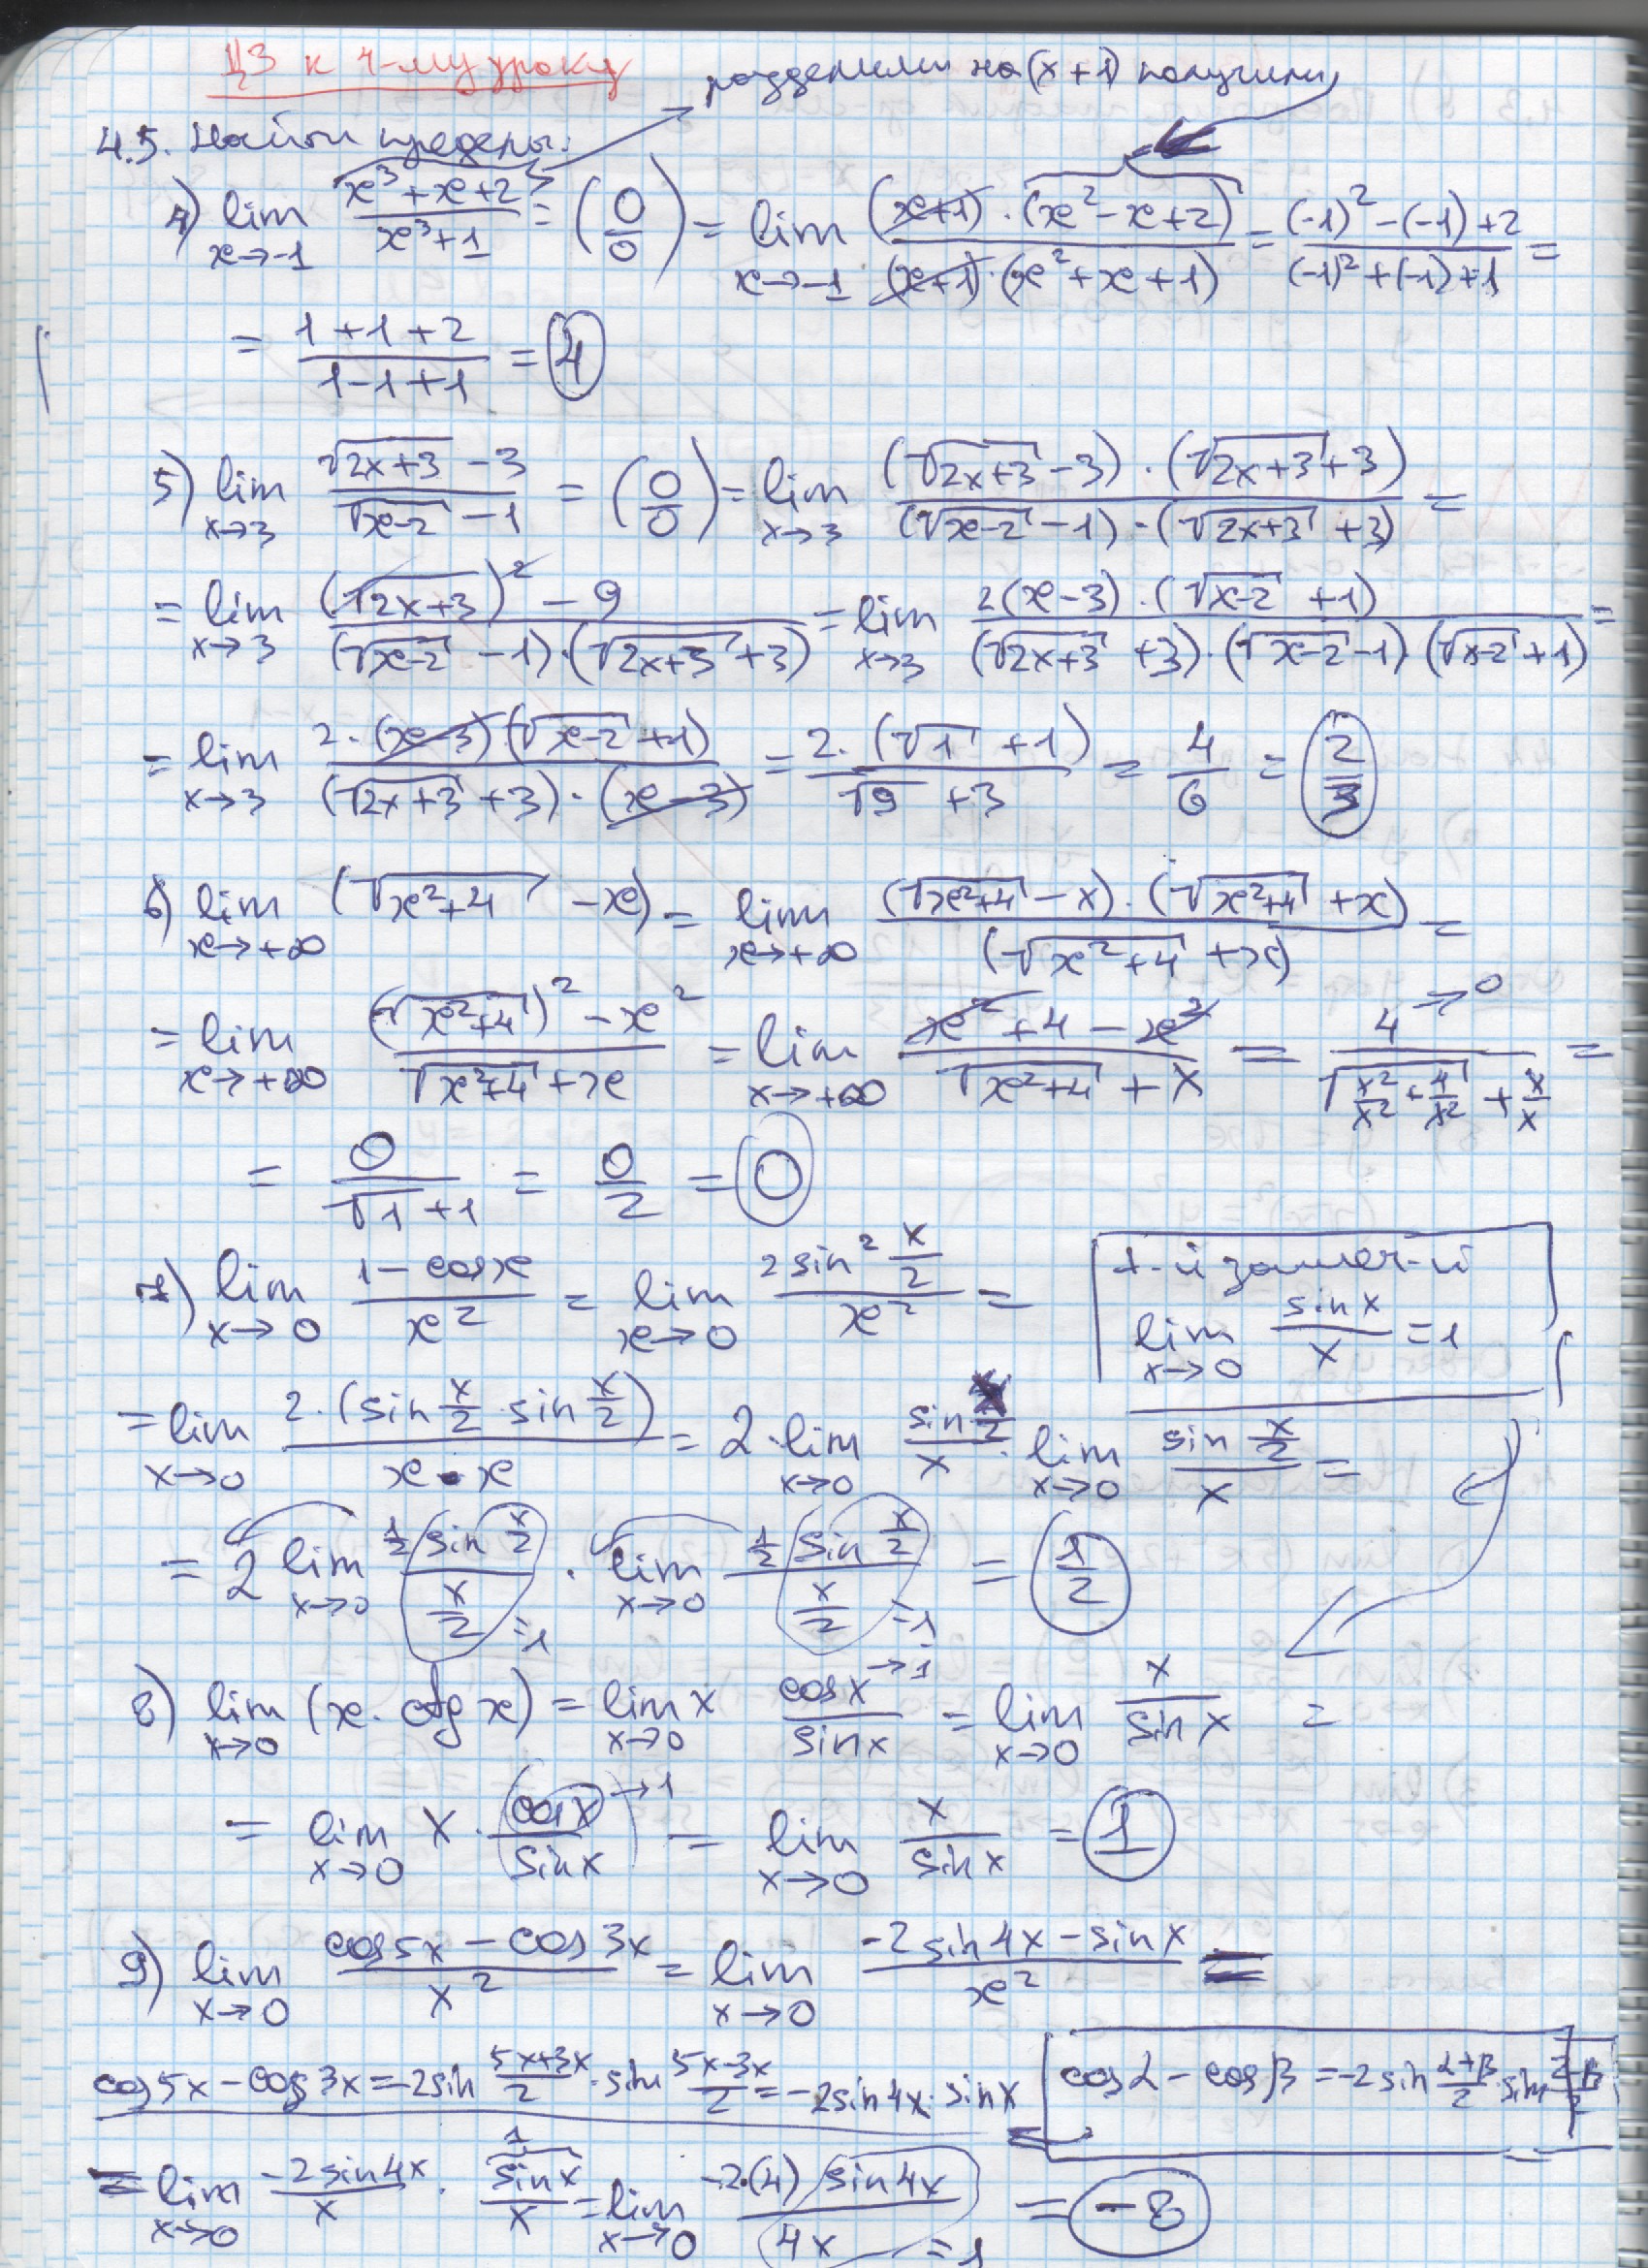 ДЗ к 4-му уроку
разделили на (x+1) получили
4.5. Найти пределы:
4) lim x→-1 (x³+x+2)/(x³+1) = (0/0) = lim x→-1 ((x+1)·(x²-x+2))/((x+1)·(x²+x+1)) = ((-1)²-(-1)+2)/((-1)²+(-1)+1) =
= (1+1+2)/(1-1+1) = 4
5) lim x→3 (√(2x+3) -3)/(√(x-2) -1) = (0/0) = lim x→3 ((√(2x+3) -3)·(√(2x+3) +3))/((√(x-2) -1)·(√(2x+3) +3)) =
= lim x→3 ((√(2x+3))² - 9)/((√(x-2) -1)·(√(2x+3) +3)) = lim x→3 (2(x-3)·(√(x-2) +1))/((√(2x+3) +3)·(√(x-2) -1)(√(x-2) +1)) =
= lim x→3 (2·(x-3)(√(x-2) +1))/((√(2x+3) +3)·(x-3)) = (2·(√1 +1))/(√9 +3) = 4/6 = 2/3
6) lim x→+∞ (√(x²+4) -x) = lim x→+∞ ((√(x²+4) -x)·(√(x²+4) +x))/(√(x²+4) +x) =
= lim x→+∞ ((√(x²+4))² -x²)/(√(x²+4) +x) = lim x→+∞ (x²+4-x²)/(√(x²+4) +x) = 4→0/(√(x²/x² + 4/x²) + x/x) =
= 0/(√1 +1) = 0/2 = 0
7) lim x→0 (1-cosx)/x² = lim x→0 (2sin² x/2)/x² =
1-й замеч-й
lim x→0 sinx/x = 1
= lim x→0 (2·(sin x/2 · sin x/2))/(x·x) = 2·lim x→0 (sin x/2)/x · lim x→0 (sin x/2)/x =
= 2 lim x→0 (1/2 sin x/2)/(x/2) =1 · lim x→0 (1/2 sin x/2)/(x/2) =1 = 1/2
8) lim x→0 (x·ctg x) = lim x→0 x cosx→1/sinx = lim x→0 x/sinx =
= lim x→0 x· cosx→1/sinx = lim x→0 x/sinx = 1
9) lim x→0 (cos5x - cos3x)/x² = lim x→0 (-2sin4x - sinx)/x² =
cos5x - cos3x = -2sin (5x+3x)/2 · sin (5x-3x)/2 = -2sin4x · sinx
cosα - cosβ = -2sin (α+β)/2 · sin (α-β)/2
= lim x→0 (-2sin4x)/x · sinx/x 1 = lim x→0 (-2·(4) sin4x)/4x =1 = -8